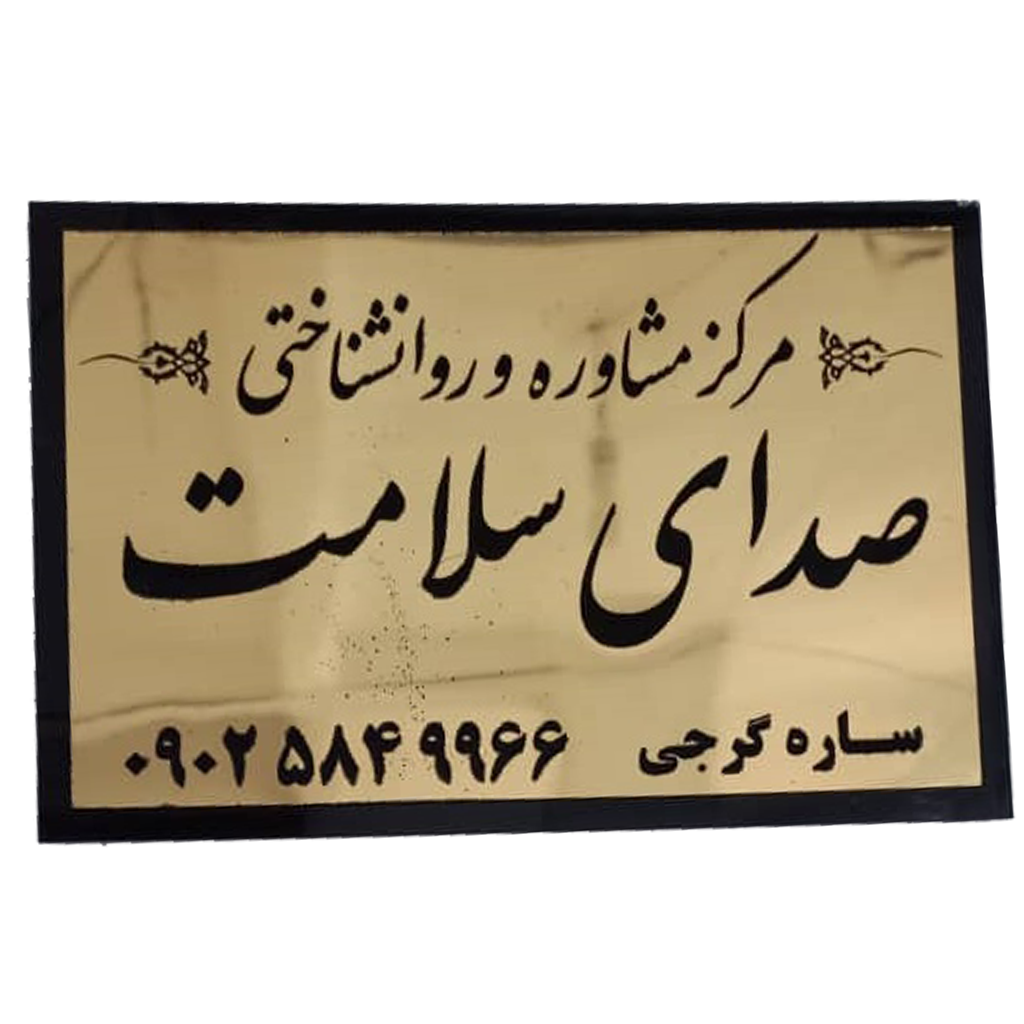 مرکز مشاوره و روانشناختی
صدای سلامت
ساره گرجی ۰۹۰۲ ۵۸۴ ۹۹۶۶